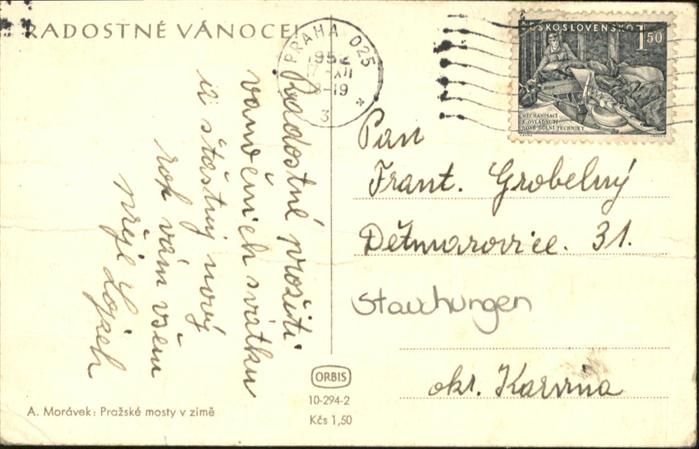 RADOSTNÉ VÁNOCE!
PRAHA 025
1952
XII
-19
3
ČESKOSLOVENSKO
1,50
MECHANISACÍ
K OVLÁDNUTÍ
NOVÉ DŮLNÍ TECHNIKY
Radostné prožití
vanočnich svátku
a šťastný nový
rok vám všem
přeje
Pan
Frant. Grobelný
Dětmarovice. 31.
Stauchungen
okr. Karvina
ORBIS
10-294-2
Kčs 1,50
A. Morávek: Pražské mosty v zimě